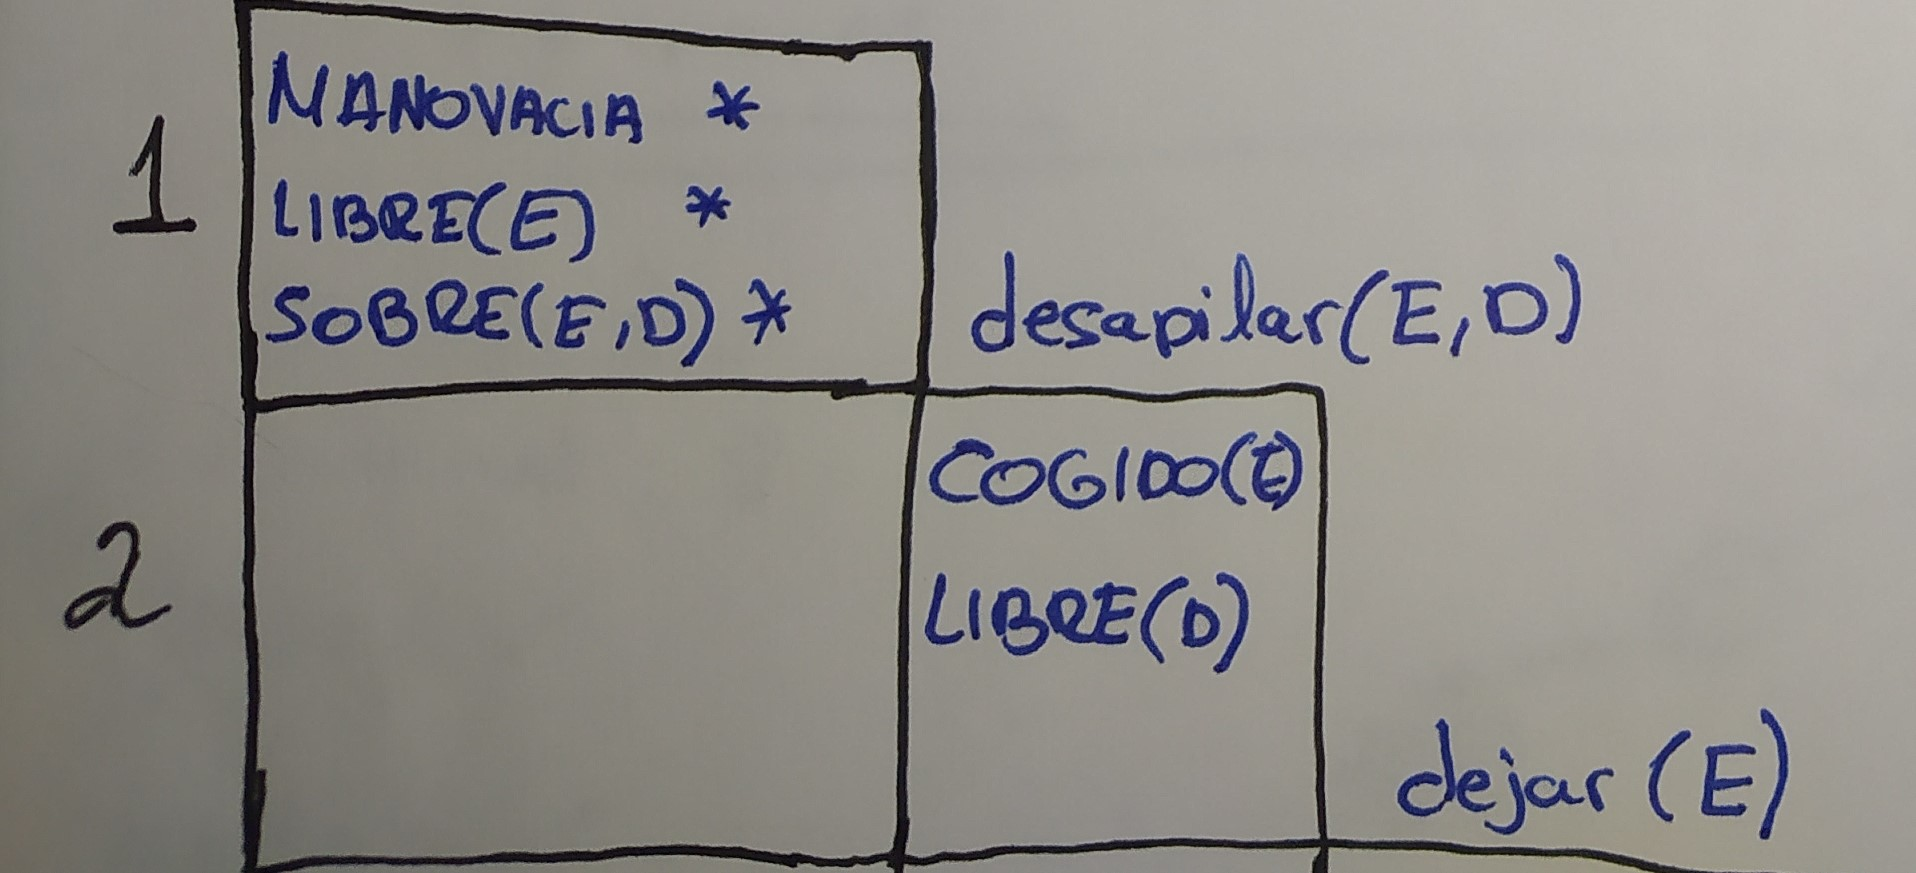 1
MANOVACIA *
LIBRE(E) *
SOBRE(E,D) *
desapilar(E,D)
2
COGIDO(E)
LIBRE(D)
dejar (E)